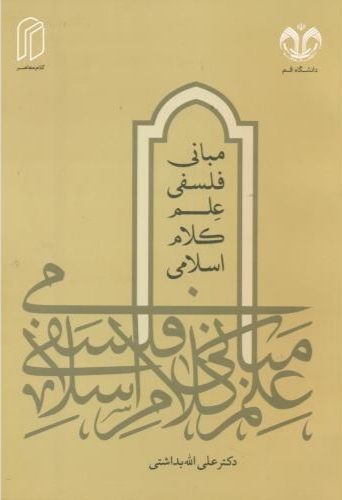 دانشگاه قم
کلام معاصر
مبانی
فلسفی
عِلم
کلام
اسلامی
مبانی فلسفی
علم کلام اسلامی
دکتر علی الله بداشتی